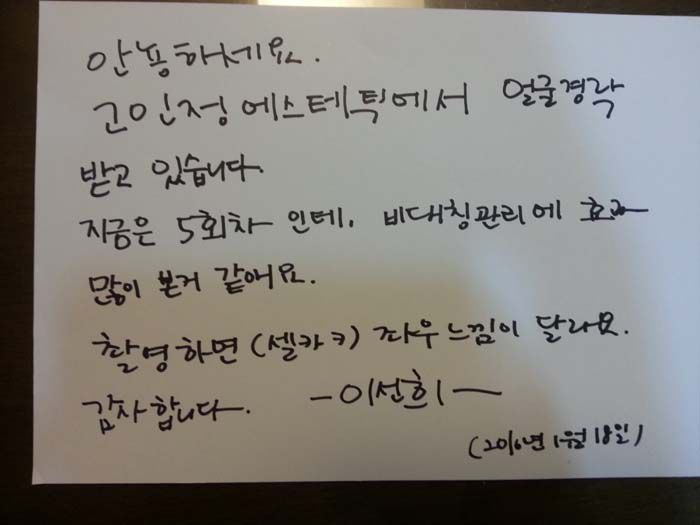 안뇽하세요.
고인정에스테틱에서 얼굴경락
받고 있습니다.
지금은 5회차 인테, 비대칭관리에 효과
많이 본거 같애요.
촬영하면(셀카ㅋ) 좌우느낌이 달라요.
감사합니다. -이선희-
(2016년 1월 18일)